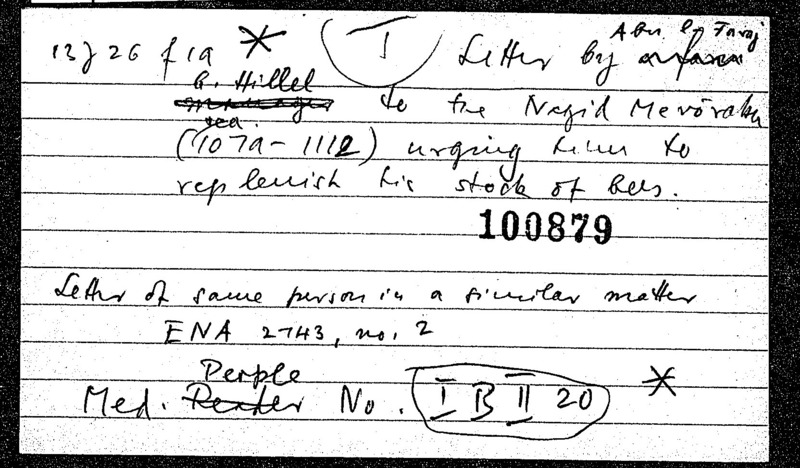 13 J 26 f 19 * I Letter by Abu l-Faraj
b. Hillel to the Nagid Mevōrakh
(rea. 1079-1112) urging him to
replenish his stock of bees.
100879
Letter of same person in a similar matter
ENA 2743, no. 2
Med. People No. I B II 20 *